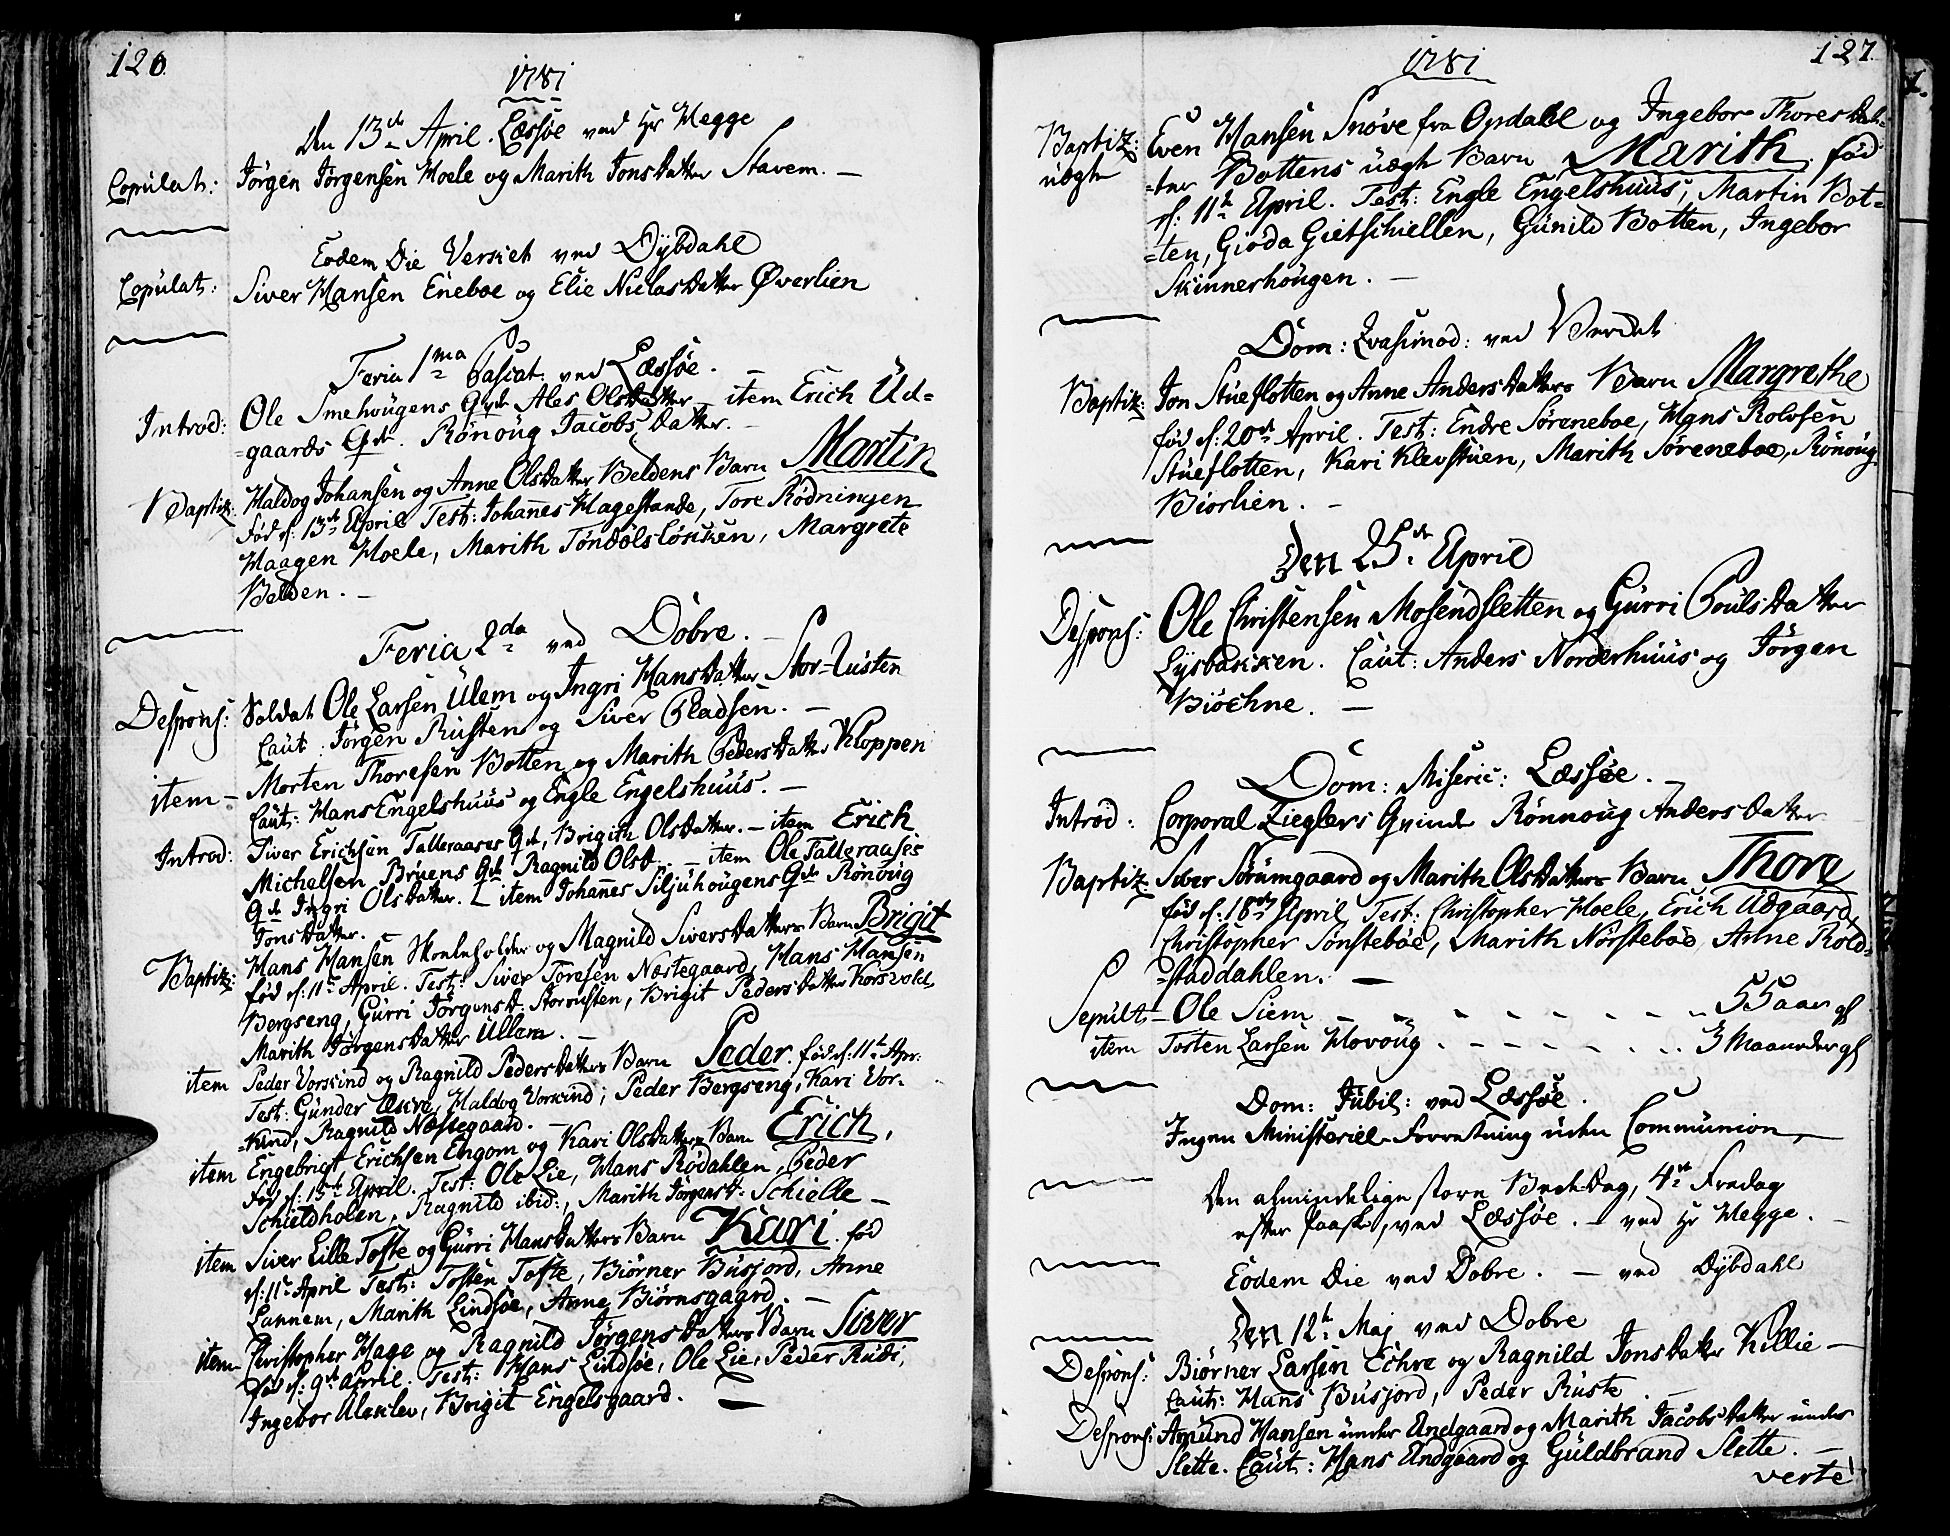 126.
1781
den 13de April. Læssøe ved Hr Hegge
Copulat: Jörgen Jörgensen Hoele og Marith JonsDatter Stavem. —
Eodem Die Verket ved Dybdahl
Copulat: Siver Hansen Eneboe og Elie NielasDatter Øverlien
Feria 1ma Pascat: ved Læssøe. —
Introd: Ole Smehougens Qvde Ales OlsDatter — item Erich Ud=
=gaards Qvde. Rönoug JacobsDatter. —
Baptiz: Haldog Johansen og Anne OlsDatter Beldens Barn Martin
Föd d: 13de April Test: Johanes Hagestande, Tore Rödningen
Haagen Hoele, Marith Töndölslökken, Margrete
Belden. —
Feria 2da ved Dobre. —
Despons: Soldat Ole Larsen Ulem og Ingri HansDatter Stor-Rusten
Caut: Jörgen Rusten og Siver Pladsen. —
item — Morten Thoresen Botten og Marith PedersDatter Kloppen
Caut: Hans Engelshuus og Engle Engelshuus. —
Introd: Siver Erichsen Talleraases Qde, Brigith OlsDatter. — item Erich
Michelsen Bruens Qde Ragnild OlsD. — item Ole Talleraases
Qde Ingri OlsDatter. — item Johanes Siljuhougens Qde Rönoug
JonsDatter. —
Baptiz: Hans Hansen Skoleholder og Magnild SiversDatters Barn Brigit
föd d: 11te April. Test: Siver Toresen Næstegaard, Hans Hansen
Bergseng, Gurri JörgensD. Storrusten, Brigit PedersDatter Korsvold,
Marith JörgensDatter Ullem. —
item Peder Vorkind og Ragnild PedersDatters Barn Peder. föd d: 11te Apr:
Test: Gunder Ekre, Haldog Vorkind; Peder Bergseng, Kari Vor-
=kind, Ragnild Næstegaard. —
item Engebrigt Erichsen Angom og Kari OlsDatters Barn Erich,
föd d: 15de April. Test: Ole Lie, Hans Rödahlen, Peder
Schieldholen, Ragnild ibid:, Marith JörgensD: Schielle —
item Siver Lille Tofte og Gurri HansDatters Barn Kari. föd
d: 11te April Test: Tosten Tofte, Biörner Busjord, Anne
Lannem, Marith Lindsöe, Anne Biörnsgaard. —
item Christopher Hage og Ragnild JörgensDatters Barn Siver
föd d: 9de April. Test: Hans Lindsöe, Ole Lie, Peder Rudi,
Ingebor Aleklev, Brigit Engelsgaard. —
127.
1781
Baptiz: Even Hansen Snöve fra Opdahl og Ingebor ThoresDat=
uægte =ter Bottens uægte Barn, Marith. föd
d: 11te April. Test: Engle Engelshuus, Martin Bot=
=ten, Gioda Gietschiellen, Gunild Botten, Ingebor
Skinnerhougen. —
Dom: Qvasimod: ved Verket
Baptiz: Jon Stueflotten og Anne AndersDatters Barn Margrethe
föd d: 20de April. Test: Endre Söreneboe, Hans Rolvsen
Stueflotten, Kari Klevstuen, Marith Söreneboe, Rönoug
Biorlien. —
Den 25de April
Despons: Ole Christensen Mosendsletten og Gurri PoulsDatter
Lysbakken. Caut: Anders Norderhuus og Jörgen
Biöckne. —
Dom: Miseric: Læssøe. —
Introd: Corporal Zieglers Qvinde Rönnoug AndersDatter
Baptiz: Siver Sörumgaard og Marith OlsDatters Barn Thore
föd d: 18de April Test: Christopher Hoele, Erich Udgaard,
Christopher Sönsteböe, Marith Nörsteböe, Anne Röld=
=staddahlen. —
Sepult — Ole Siem - - - - - - - - 55 aar gl
item Tosten Larsen Hovoug - - - - - - - 3 Maaneder gl
Dom: Jubil: ved Læssøe.
Ingen Ministeriel-Forretning uden Communion —
Den almindelige store Bededag, 4de Fredag
efter Paaske, ved Læssøe. — ved Hr Hegge. —
Eodem Die ved Dobre. — ved Dybdahl
Den 12te Maj ved Dobre
Despons: Biörner Larsen Echre og Ragnild JonsDatter Killie —
Caut: Hans Busjord, Peder Ruste. —
Despons: Amund Hansen under Andgaard og Marith JacobsDatter under
Slette. Caut: Hans Andgaard og Guldbrand Slette. —
verte!